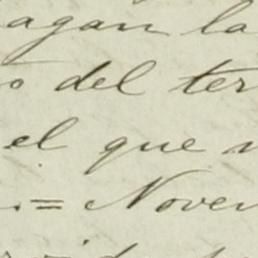 agan la
o del ter
el que
.= Novem